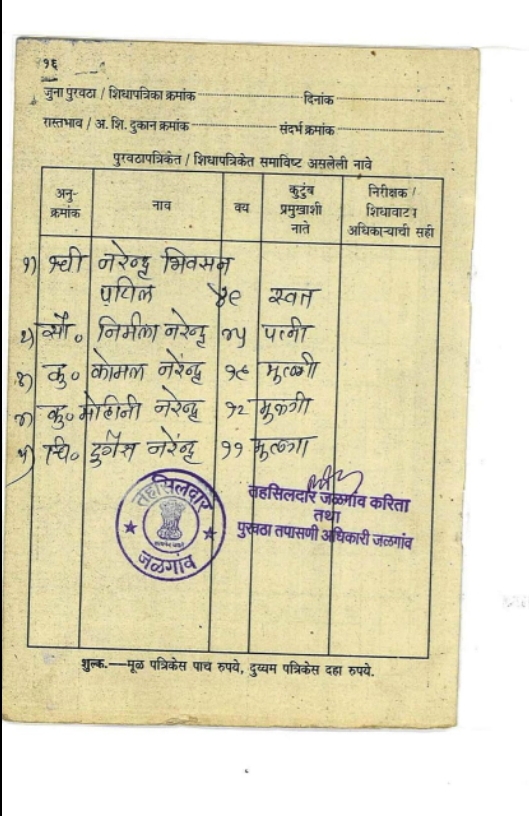 १६
जुना पुरवठा / शिधापत्रिका क्रमांक दिनांक
रास्तभाव / अ. शि. दुकान क्रमांक संदर्भ क्रमांक
पुरवठापत्रिकेत / शिधापत्रिकेत समाविष्ट असलेली नावे
अनु-क्रमांक नाव वय कुटुंब प्रमुखाशी नाते निरीक्षक / शिधावाटप अधिकाऱ्याची सही
१) श्री नरेन्द्र भिवसन
पाटील ४९ स्वत
२) सौ० निर्मला नरेन्द्र ४५ पत्नी
३) कु० कोमल नरेंद्र १९ मुलगी
४) कु० मोहीनी नरेन्द्र १२ मुलगी
५) चि० दुर्गेस नरेंन्द्र ११ मुलगा
तहसिलदार
जळगांव
तहसिलदार जळगांव करिता
तथा
पुरवठा तपासणी अधिकारी जळगांव
शुल्क.—मूळ पत्रिकेस पाच रुपये, दुय्यम पत्रिकेस दहा रुपये.